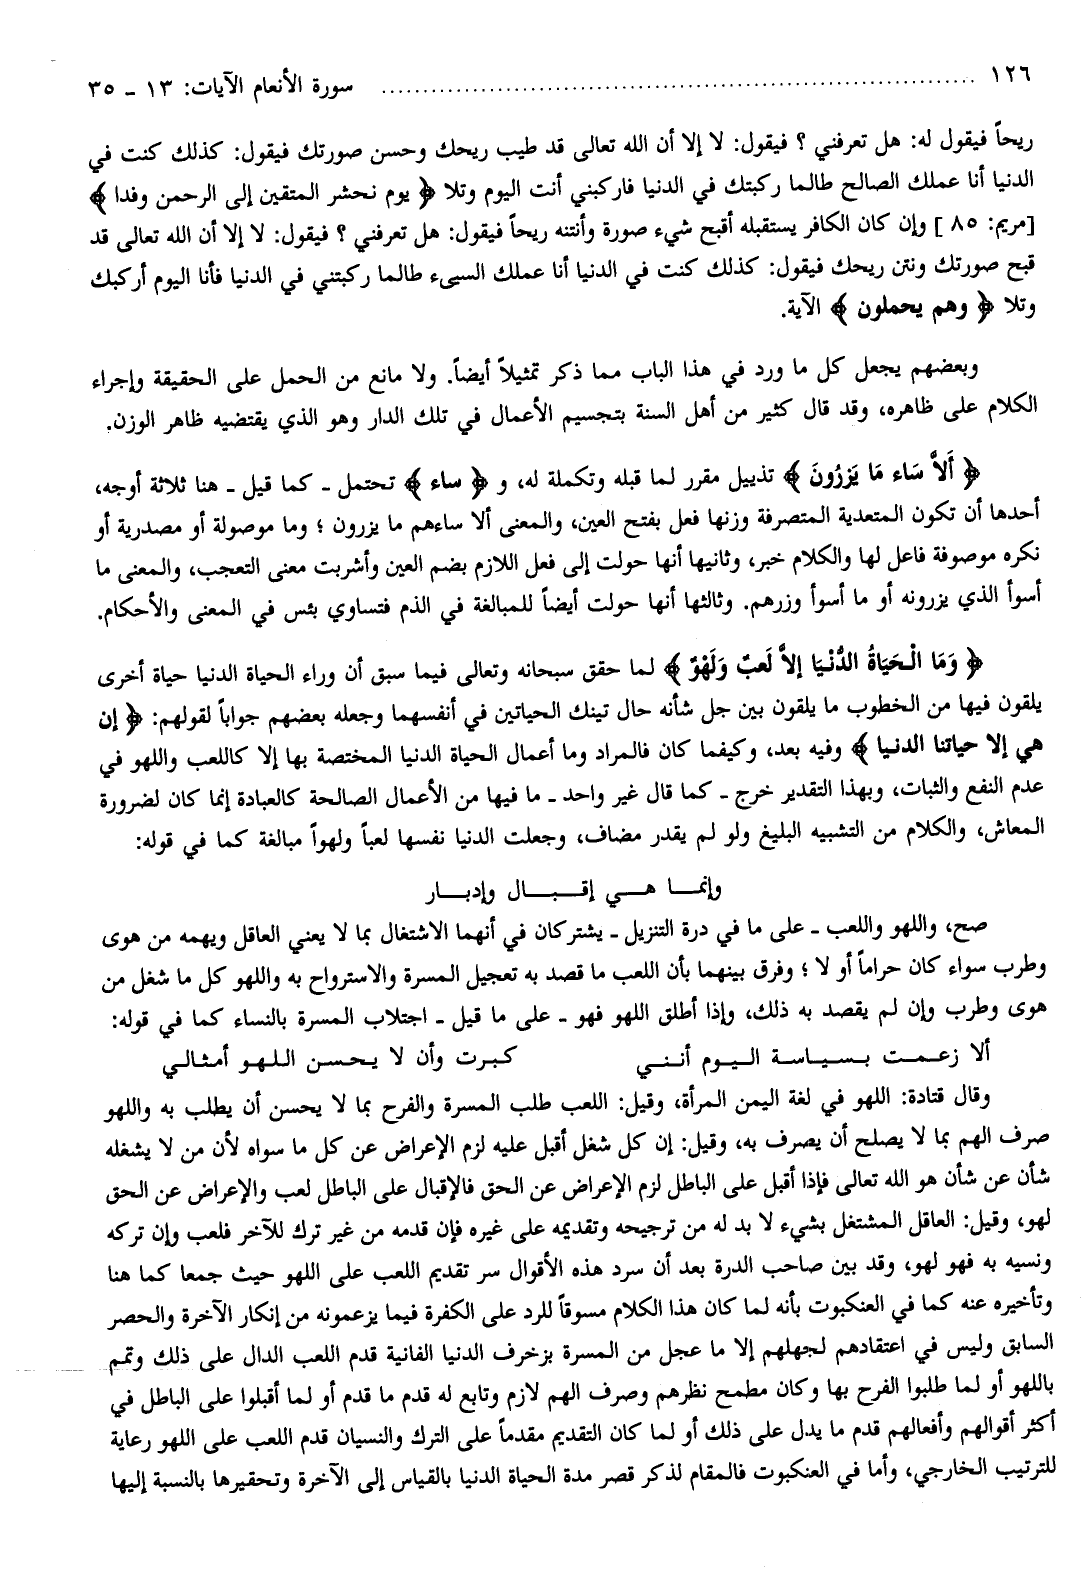 ١٢٦ ........................................................................ سورة الأنعام الآيات: ١٣ ـ ٣٥
ريحاً فيقول له: هل تعرفني ؟ فيقول: لا إلا أن الله تعالى قد طيب ريحك وحسن صورتك فيقول: كذلك كنت في
الدنيا أنا عملك الصالح طالما ركبتك في الدنيا فاركبني أنت اليوم وتلا ﴿ يوم نحشر المتقين إلى الرحمن وفدا ﴾
[مريم: ٨٥ ] وإن كان الكافر يستقبله أقبح شيء صورة وأنتنه ريحاً فيقول: هل تعرفني ؟ فيقول: لا إلا أن الله تعالى قد
قبح صورتك ونتن ريحك فيقول: كذلك كنت في الدنيا أنا عملك السيىء طالما ركبتني في الدنيا فأنا اليوم أركبك
وتلا ﴿ وهم يحملون ﴾ الآية.
وبعضهم يجعل كل ما ورد في هذا الباب مما ذكر تمثيلاً أيضاً. ولا مانع من الحمل على الحقيقة وإجراء
الكلام على ظاهره، وقد قال كثير من أهل السنة بتجسيم الأعمال في تلك الدار وهو الذي يقتضيه ظاهر الوزن.
﴿ أَلاَّ سَاء مَا يَزِرُونَ ﴾ تذييل مقرر لما قبله وتكملة له، و ﴿ ساء ﴾ تحتمل ـ كما قيل ـ هنا ثلاثة أوجه،
أحدها أن تكون المتعدية المتصرفة وزنها فعل بفتح العين، والمعنى ألا ساءهم ما يزرون ؛ وما موصولة أو مصدرية أو
نكره موصوفة فاعل لها والكلام خبر، وثانيها أنها حولت إلى فعل اللازم بضم العين وأشربت معنى التعجب، والمعنى ما
أسوأ الذي يزرونه أو ما أسوأ وزرهم. وثالثها أنها حولت أيضاً للمبالغة في الذم فتساوي بئس في المعنى والأحكام.
﴿ وَمَا الْحَيَاةُ الدُّنْيَا إلاَّ لَعبٌ وَلَهْوٌ ﴾ لما حقق سبحانه وتعالى فيما سبق أن وراء الحياة الدنيا حياة أخرى
يلقون فيها من الخطوب ما يلقون بين جل شأنه حال تينك الحياتين في أنفسهما وجعله بعضهم جواباً لقولهم: ﴿ إن
هي إلا حياتنا الدنيا ﴾ وفيه بعد، وكيفما كان فالمراد وما أعمال الحياة الدنيا المختصة بها إلا كاللعب واللهو في
عدم النفع والثبات، وبهذا التقدير خرج ـ كما قال غير واحد ـ ما فيها من الأعمال الصالحة كالعبادة إنما كان لضرورة
المعاش، والكلام من التشبيه البليغ ولو لم يقدر مضاف، وجعلت الدنيا نفسها لعباً ولهواً مبالغة كما في قوله:
وإنما هي إقبال وإدبار
صح، واللهو واللعب ـ على ما في درة التنزيل ـ يشتركان في أنهما الاشتغال بما لا يعني العاقل ويهمه من هوى
وطرب سواء كان حراماً أو لا ؛ وفرق بينهما بأن اللعب ما قصد به تعجيل المسرة والاسترواح به واللهو كل ما شغل من
هوى وطرب وإن لم يقصد به ذلك، وإذا أطلق اللهو فهو ـ على ما قيل ـ اجتلاب المسرة بالنساء كما في قوله:
ألا زعمت بسياسة اليوم أنني كبرت وأن لا يحسن اللهو أمثالي
وقال قتادة: اللهو في لغة اليمن المرأة، وقيل: اللعب طلب المسرة والفرح بما لا يحسن أن يطلب به واللهو
صرف الهم بما لا يصلح أن يصرف به، وقيل: إن كل شغل أقبل عليه لزم الإعراض عن كل ما سواه لأن من لا يشغله
شأن عن شأن هو الله تعالى فإذا أقبل على الباطل لزم الإعراض عن الحق فالإقبال على الباطل لعب والإعراض عن الحق
لهو، وقيل: العاقل المشتغل بشيء لا بد له من ترجيحه وتقديمه على غيره فإن قدمه من غير ترك للآخر فلعب وإن تركه
ونسيه به فهو لهو، وقد بين صاحب الدرة بعد أن سرد هذه الأقوال سر تقديم اللعب على اللهو حيث جمعا كما هنا
وتأخيره عنه كما في العنكبوت بأنه لما كان هذا الكلام مسوقاً للرد على الكفرة فيما يزعمونه من إنكار الآخرة والحصر
السابق وليس في اعتقادهم لجهلهم إلا ما عجل من المسرة بزخرف الدنيا الفانية قدم اللعب الدال على ذلك وتمم
باللهو أو لما طلبوا الفرح بها وكان مطمح نظرهم وصرف الهم لازم وتابع له قدم ما قدم أو لما أقبلوا على الباطل في
أكثر أقوالهم وأفعالهم قدم ما يدل على ذلك أو لما كان التقديم مقدماً على الترك والنسيان قدم اللعب على اللهو رعاية
للترتيب الخارجي، وأما في العنكبوت فالمقام لذكر قصر مدة الحياة الدنيا بالقياس إلى الآخرة وتحقيرها بالنسبة إليها